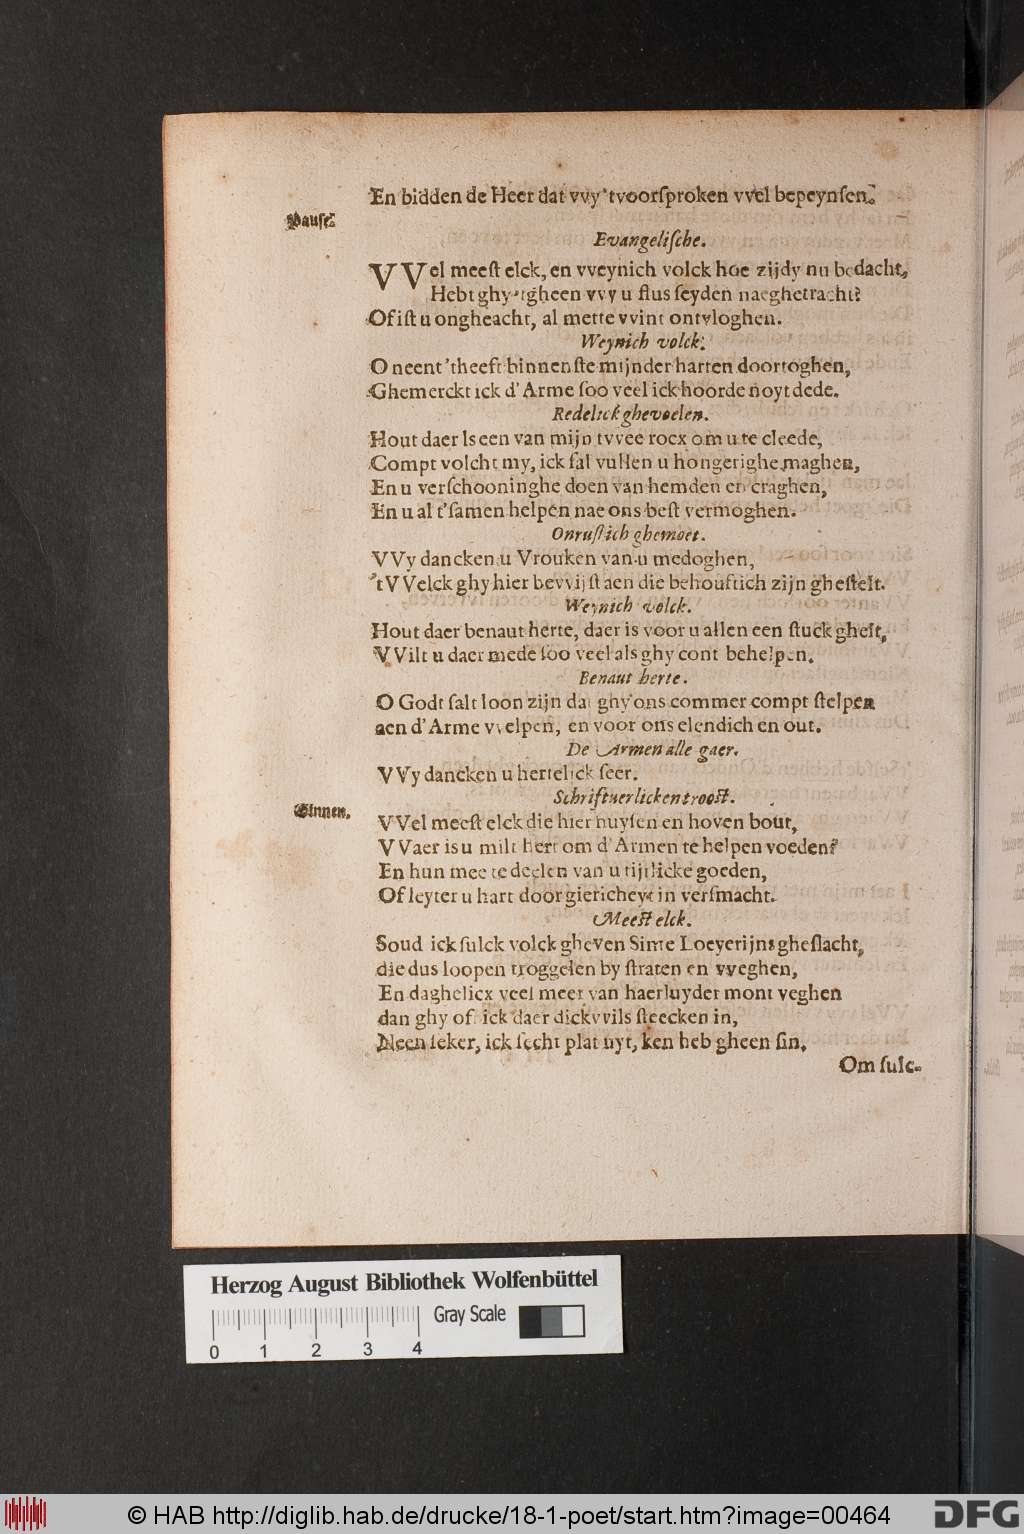 En bidden de Heer dat vvy 'tvoorſproken vvel bepeynſen.
Pauſe.
Evangeliſche.
VVel meeſt elck, en vveynich volck hoe zijdy nu bedacht,
Hebt ghy 'tgheen vvy u flus ſeyden naeghetracht?
Of iſt u ongheacht, al mette vvint ontvloghen.
Weynich volck.
O neent 'theeft binnenſte mijnder harten doortoghen,
Ghemerckt ick d'Arme ſoo veel ick hoorde noyt dede.
Redelick ghevoelen.
Hout daer Is een van mijn tvvee rocx om u te cleede,
Compt volcht my, ick ſal vullen u hongerighe maghen,
En u verſchooninghe doen van hemden en craghen,
En u al t'ſamen helpen nae ons beſt vermoghen.
Onruſtich ghemoet.
VVy dancken u Vrouken van u medoghen,
'tVVelck ghy hier bevvijſt aen die behouftich zijn gheſtelt.
Weynich volck.
Hout daer benaut herte, daer is voor u allen een ſtuck ghelt,
VVilt u daer mede ſoo veel als ghy cont behelpen.
Benaut herte.
O Godt ſalt loon zijn dat ghy ons commer compt ſtelpen
aen d'Arme vvelpen, en voor ons elendich en out.
De Armen alle gaer.
VVy dancken u hertelick ſeer.
Schriftuerlicken trooſt.
Binnen.
VVel meeſt elck die hier huyſen en hoven bout,
VVaer is u milt hert om d'Armen te helpen voeden?
En hun mee te deelen van u tijtlicke goeden,
Of leyter u hart door giericheyt in verſmacht.
Meeſt elck.
Soud ick ſulck volck gheven Sinte Loeyerijns gheſlacht,
die dus loopen troggelen by ſtraten en vveghen,
En daghelicx veel meer van haerluyder mont veghen
dan ghy of ick daer dickvvils ſteecken in,
Neen ſeker, ick ſecht plat uyt, ken heb gheen ſin,
Om ſulc-
Herzog August Bibliothek Wolfenbüttel
Gray Scale
0 1 2 3 4
© HAB http://diglib.hab.de/drucke/18-1-poet/start.htm?image=00464
DFG